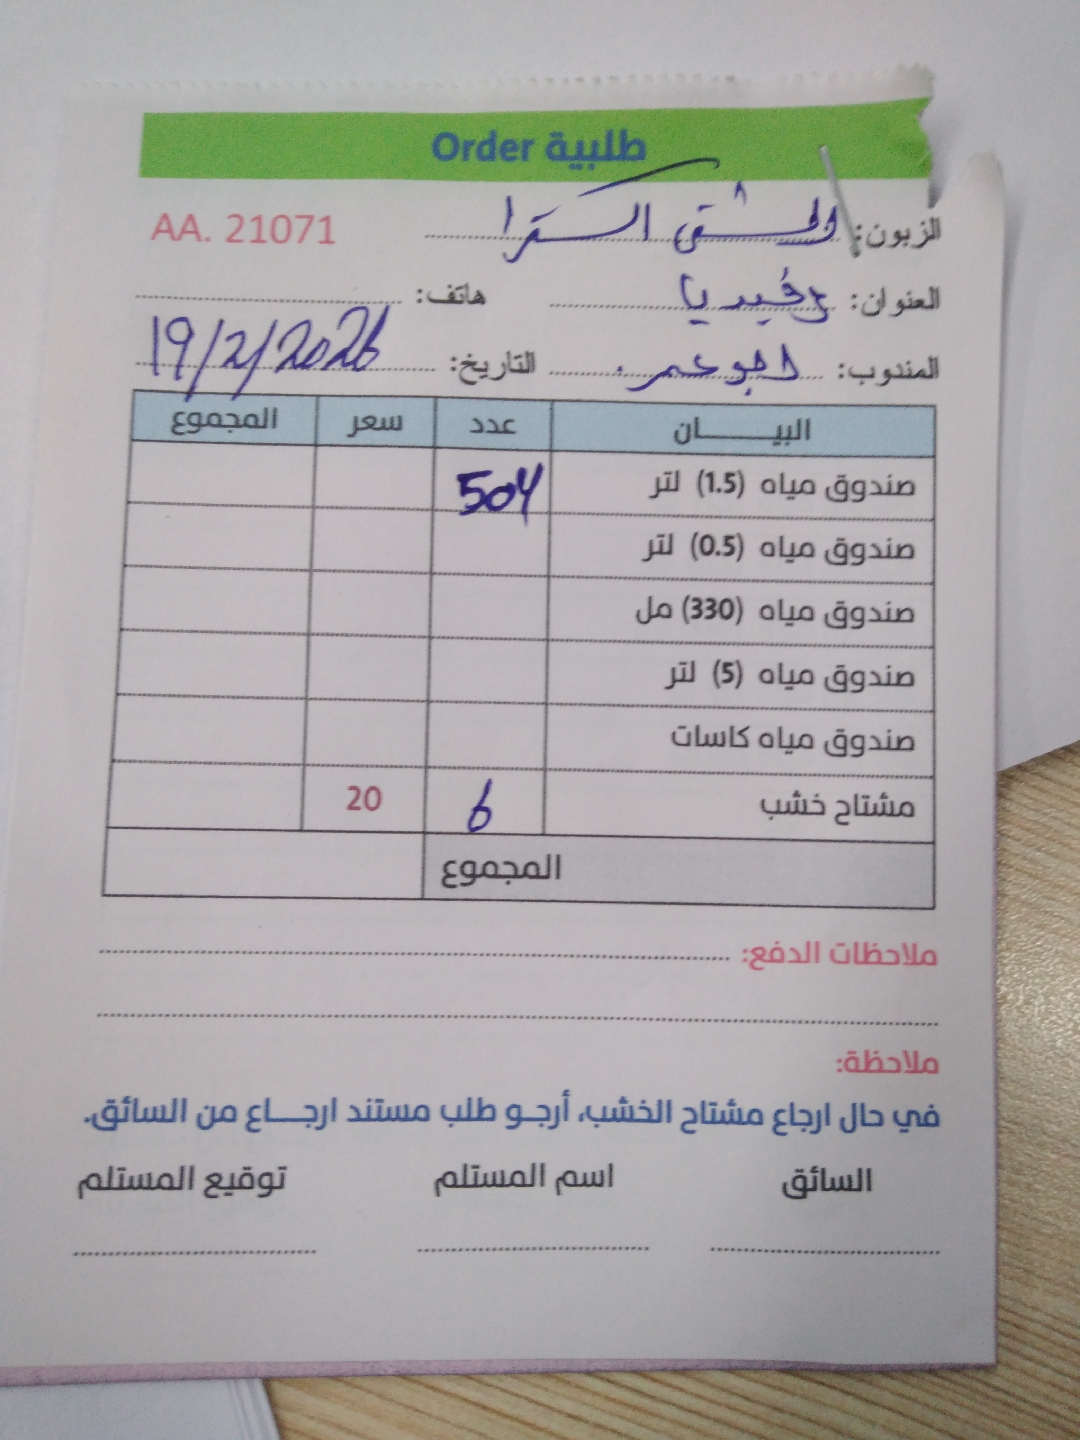 طلبية Order
الزبون: AA. 21071
العنوان: هاتف:
المندوب: ابو عمر التاريخ: 19/2/2026
البيـــــان عدد سعر المجموع
صندوق مياه (1.5) لتر 504
صندوق مياه (0.5) لتر
صندوق مياه (330) مل
صندوق مياه (5) لتر
صندوق مياه كاسات
مشتاح خشب 6 20
المجموع
ملاحظات الدفع:
ملاحظة:
في حال ارجاع مشتاح الخشب، أرجـو طلب مستند ارجـــاع من السائق.
السائق اسم المستلم توقيع المستلم